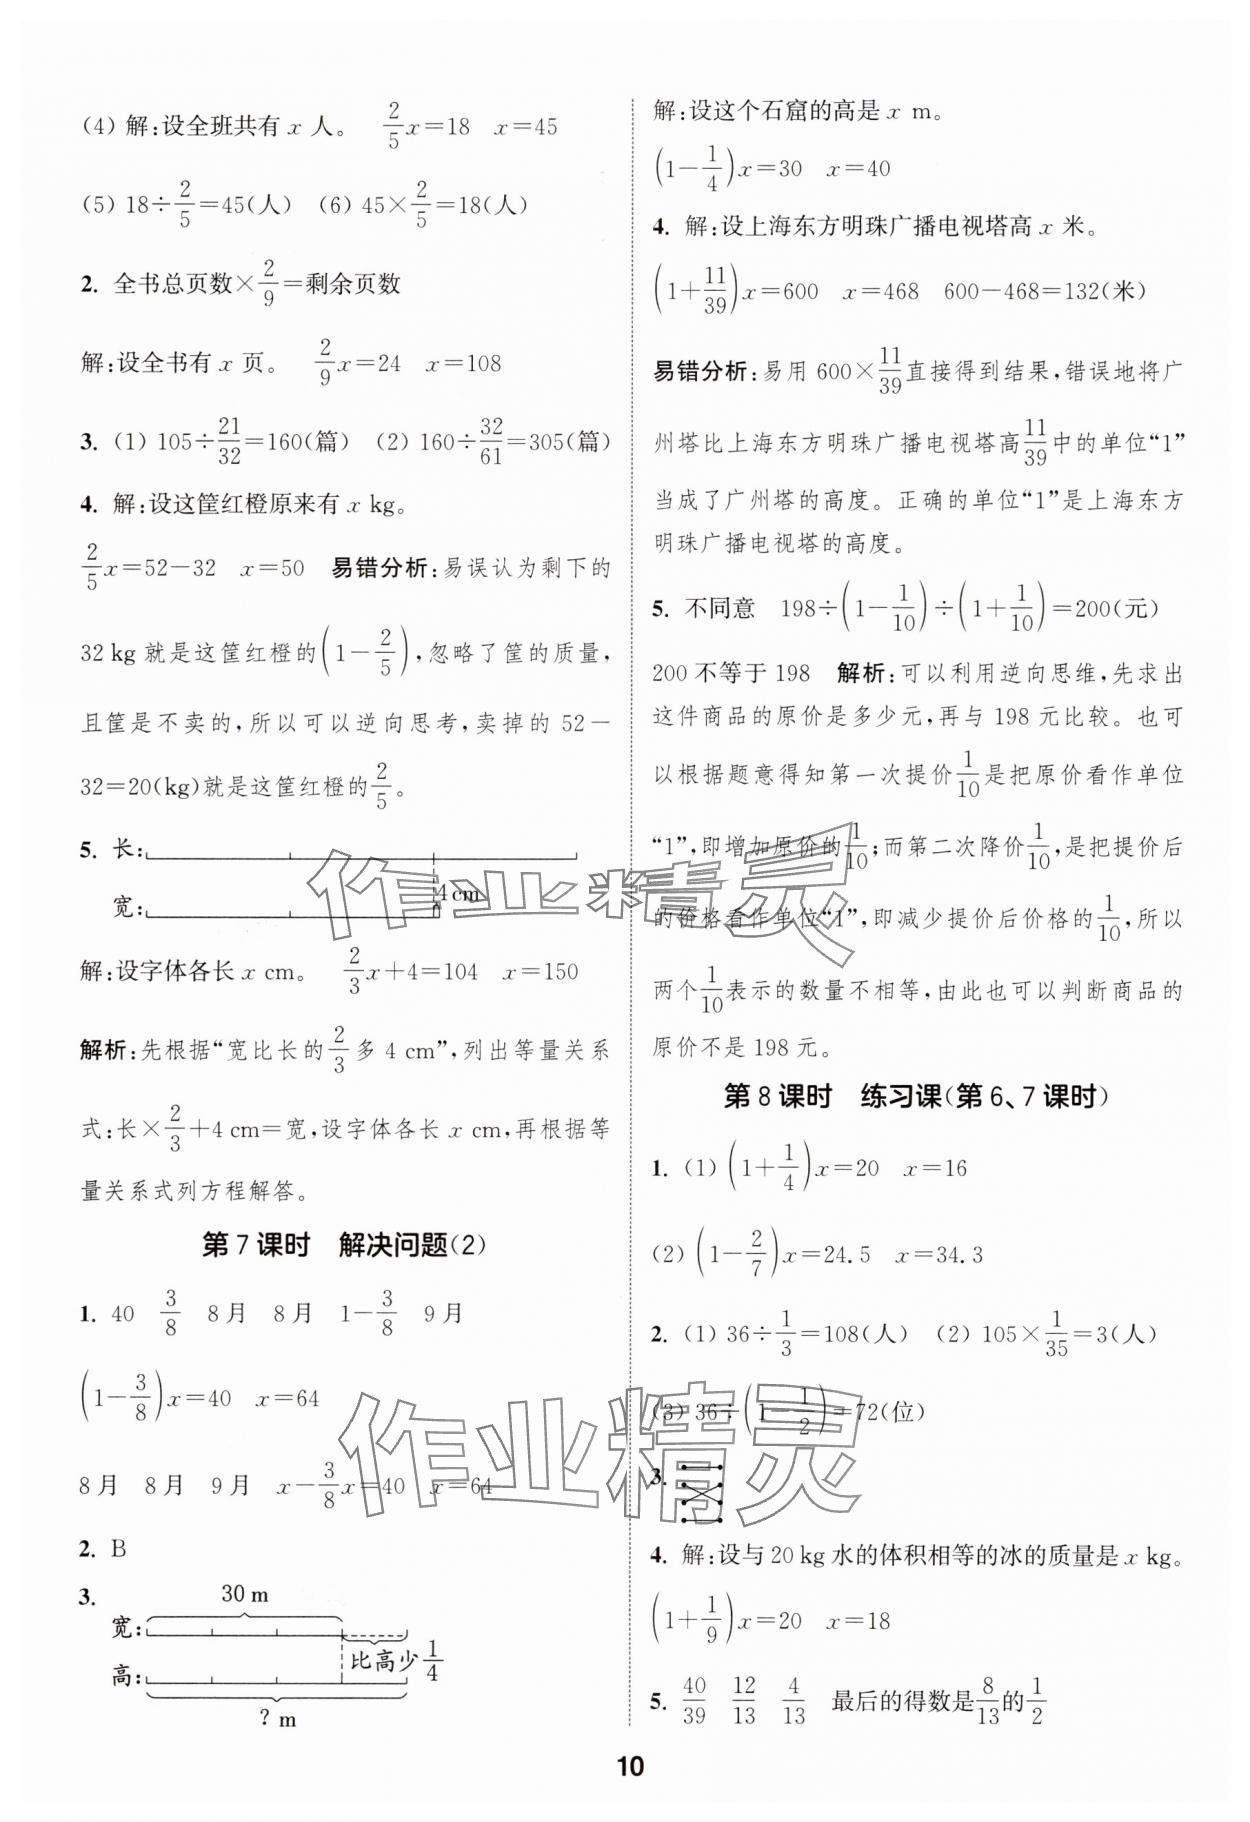 (4) 解:设全班共有 x 人。 2/5x=18 x=45
(5) 18÷2/5=45(人) (6) 45×2/5=18(人)
2. 全书总页数×2/9=剩余页数
解:设全书有 x 页。 2/9x=24 x=108
3. (1) 105÷21/32=160(篇) (2) 160÷32/61=305(篇)
4. 解:设这筐红橙原来有 x kg。
2/5x=52-32 x=50 易错分析:易误认为剩下的
32 kg 就是这筐红橙的(1-2/5),忽略了筐的质量,
且筐是不卖的,所以可以逆向思考,卖掉的 52-
32=20(kg)就是这筐红橙的2/5。
5. 长:
4 cm
宽:
解:设字体各长 x cm。 2/3x+4=104 x=150
解析:先根据“宽比长的2/3多4 cm”,列出等量关系
式:长×2/3+4 cm=宽,设字体各长 x cm,再根据等
量关系式列方程解答。
第 7 课时 解决问题(2)
1. 40 3/8 8月 8月 1-3/8 9月
(1-3/8)x=40 x=64
8月 8月 9月 x-3/8x=40 x=64
2. B
3.
30 m
宽:
比高少1/4
高:
? m
解:设这个石窟的高是 x m。
(1-1/4)x=30 x=40
4. 解:设上海东方明珠广播电视塔高 x 米。
(1+11/39)x=600 x=468 600-468=132(米)
易错分析:易用 600×11/39直接得到结果,错误地将广
州塔比上海东方明珠广播电视塔高11/39中的单位“1”
当成了广州塔的高度。正确的单位“1”是上海东方
明珠广播电视塔的高度。
5. 不同意 198÷(1-1/10)÷(1+1/10)=200(元)
200 不等于 198 解析:可以利用逆向思维,先求出
这件商品的原价是多少元,再与 198 元比较。也可
以根据题意得知第一次提价1/10是把原价看作单位
“1”,即增加原价的1/10;而第二次降价1/10,是把提价后
的价格看作单位“1”,即减少提价后价格的1/10,所以
两个1/10表示的数量不相等,由此也可以判断商品的
原价不是 198 元。
第 8 课时 练习课(第 6、7 课时)
1. (1) (1+1/4)x=20 x=16
(2) (1-2/7)x=24.5 x=34.3
2. (1) 36÷1/3=108(人) (2) 105×1/35=3(人)
(3) 36÷(1-1/2)=72(位)
3.
4. 解:设与 20 kg 水的体积相等的冰的质量是 x kg。
(1+1/9)x=20 x=18
5. 40/39 12/13 4/13 最后的得数是8/13的1/2
10
作业精灵
作业精灵